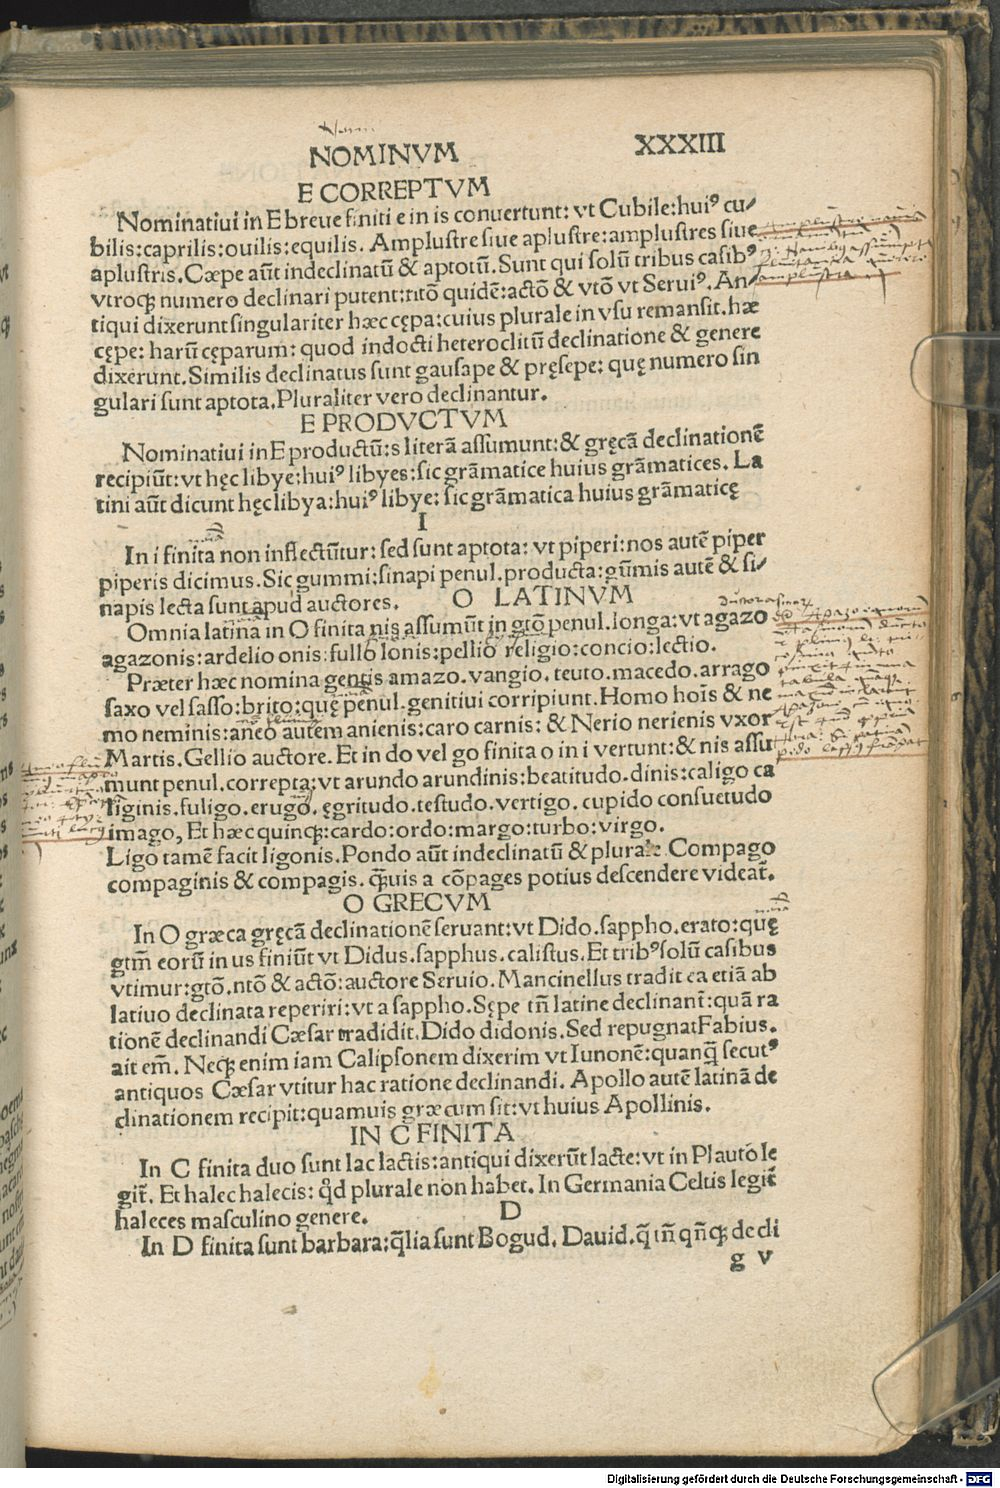 NOMINVM XXXIII
E CORREPTVM
Nominatiui in E breue finiti e in is conuertunt: vt Cubile: huiꝰ cu/
bilis: caprilis: ouilis: equilis. Amplustre siue aplustre: amplustres siue
aplustris. Cæpe aūt indeclinatū & aptotū. Sunt qui solū tribus casibꝰ
vtroqꝫ numero declinari putent: ntō quidē: actō & vtō vt Seruiꝰ. An/
tiqui dixerunt singulariter hæc cępa: cuius plurale in vsu remansit. hæ
cępe: harū cęparum: quod indocti heteroclitū declinatione & genere
dixerunt. Similis declinatus sunt gausape & pręsepe: quę numero sin
gulari sunt aptota. Pluraliter vero declinantur.
E PRODVCTVM
Nominatiui in E productū: s literā assumunt: & gręcā declinationē
recipiūt: vt hęc libye: huiꝰ libyes: sic grāmatice huius grāmatices. La
tini aūt dicunt hęc libya: huiꝰ libye: sic grāmatica huius grāmaticę
I
In i finita non inflectūtur: sed sunt aptota: vt piperi: nos autē piper
piperis dicimus. Sic gummi: sinapi penul. producta: gūmis autē & si/
napis lecta sunt apud auctores. O LATINVM
Omnia latina in O finita nis assumūt in gtō penul. longa: vt agazo
agazonis: ardelio onis: fullo lonis: pellio religio: concio: lectio.
Præter hæc nomina gentis amazo. vangio. teuto. macedo. arrago
saxo vel sasso: brito: quę penul. genitiui corripiunt. Homo hoīs & ne
mo neminis: aneo autem anienis: caro carnis: & Nerio nerienis vxor
Martis. Gellio auctore. Et in do vel go finita o in i vertunt: & nis assu
munt penul. correpta: vt arundo arundinis: beatitudo. dinis: caligo ca
liginis. fuligo. erugo. ęgritudo. testudo. vertigo. cupido consuetudo
imago, Et hæc quinqꝫ: cardo: ordo: margo: turbo: virgo.
Ligo tamē facit ligonis. Pondo aūt indeclinatū & plurale Compago
compaginis & compagis. ꝙ̄uis a cōpages potius descendere videat̄.
O GRECVM
In O græca gręcā declinationē seruant: vt Dido. sappho. erato: quę
gtm̄ eorū in us finiūt vt Didus. sapphus. calistus. Et tribꝰ solū casibus
vtimur: gtō. ntō & actō: auctore Seruio. Mancinellus tradit ea etiā ab
latiuo declinata reperiri: vt a sappho. Sępe tn̄ latine declinant̄: quā ra
tionē declinandi Cæsar tradidit. Dido didonis. Sed repugnat Fabius.
ait em̄. Neqꝫ enim iam Calipsonem dixerim vt Iunonē: quanq̄ secutꝰ
antiquos Cæsar vtitur hac ratione declinandi. Apollo autē latinā de
clinationem recipit: quamuis græcum sit: vt huius Apollinis.
IN C FINITA
In C finita duo sunt lac lactis: antiqui dixerūt lacte: vt in Plauto le
git̄. Et halec halecis: qd̄ plurale non habet. In Germania Celtis legit̄
haleces masculino genere. D
In D finita sunt barbara: q̄lia sunt Bogud. Dauid. q̄ tn̄ qn̄qꝫ decli
g v
Digitalisierung gefördert durch die Deutsche Forschungsgemeinschaft - DFG